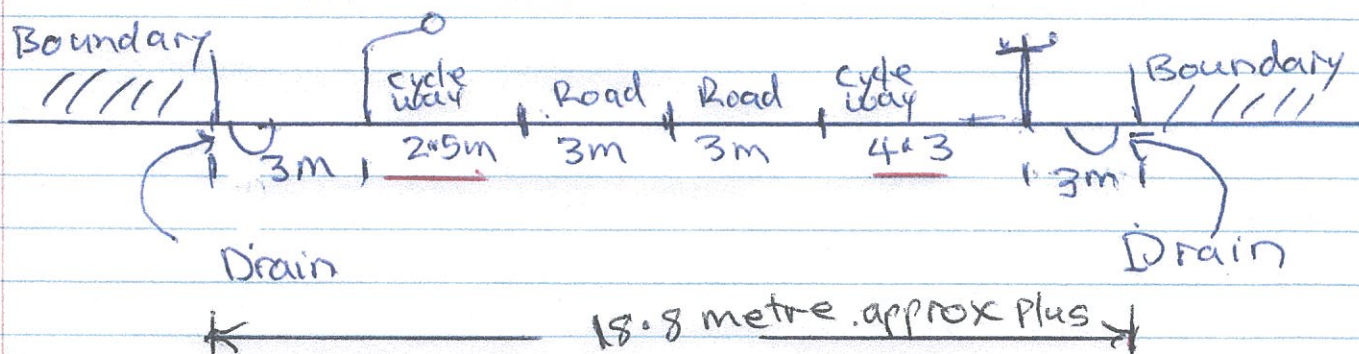 Boundary
cycle way
Road
Road
cycle way
Boundary
3m
2.5m
3m
3m
4.3
3m
Drain
Drain
18.8 metre approx plus